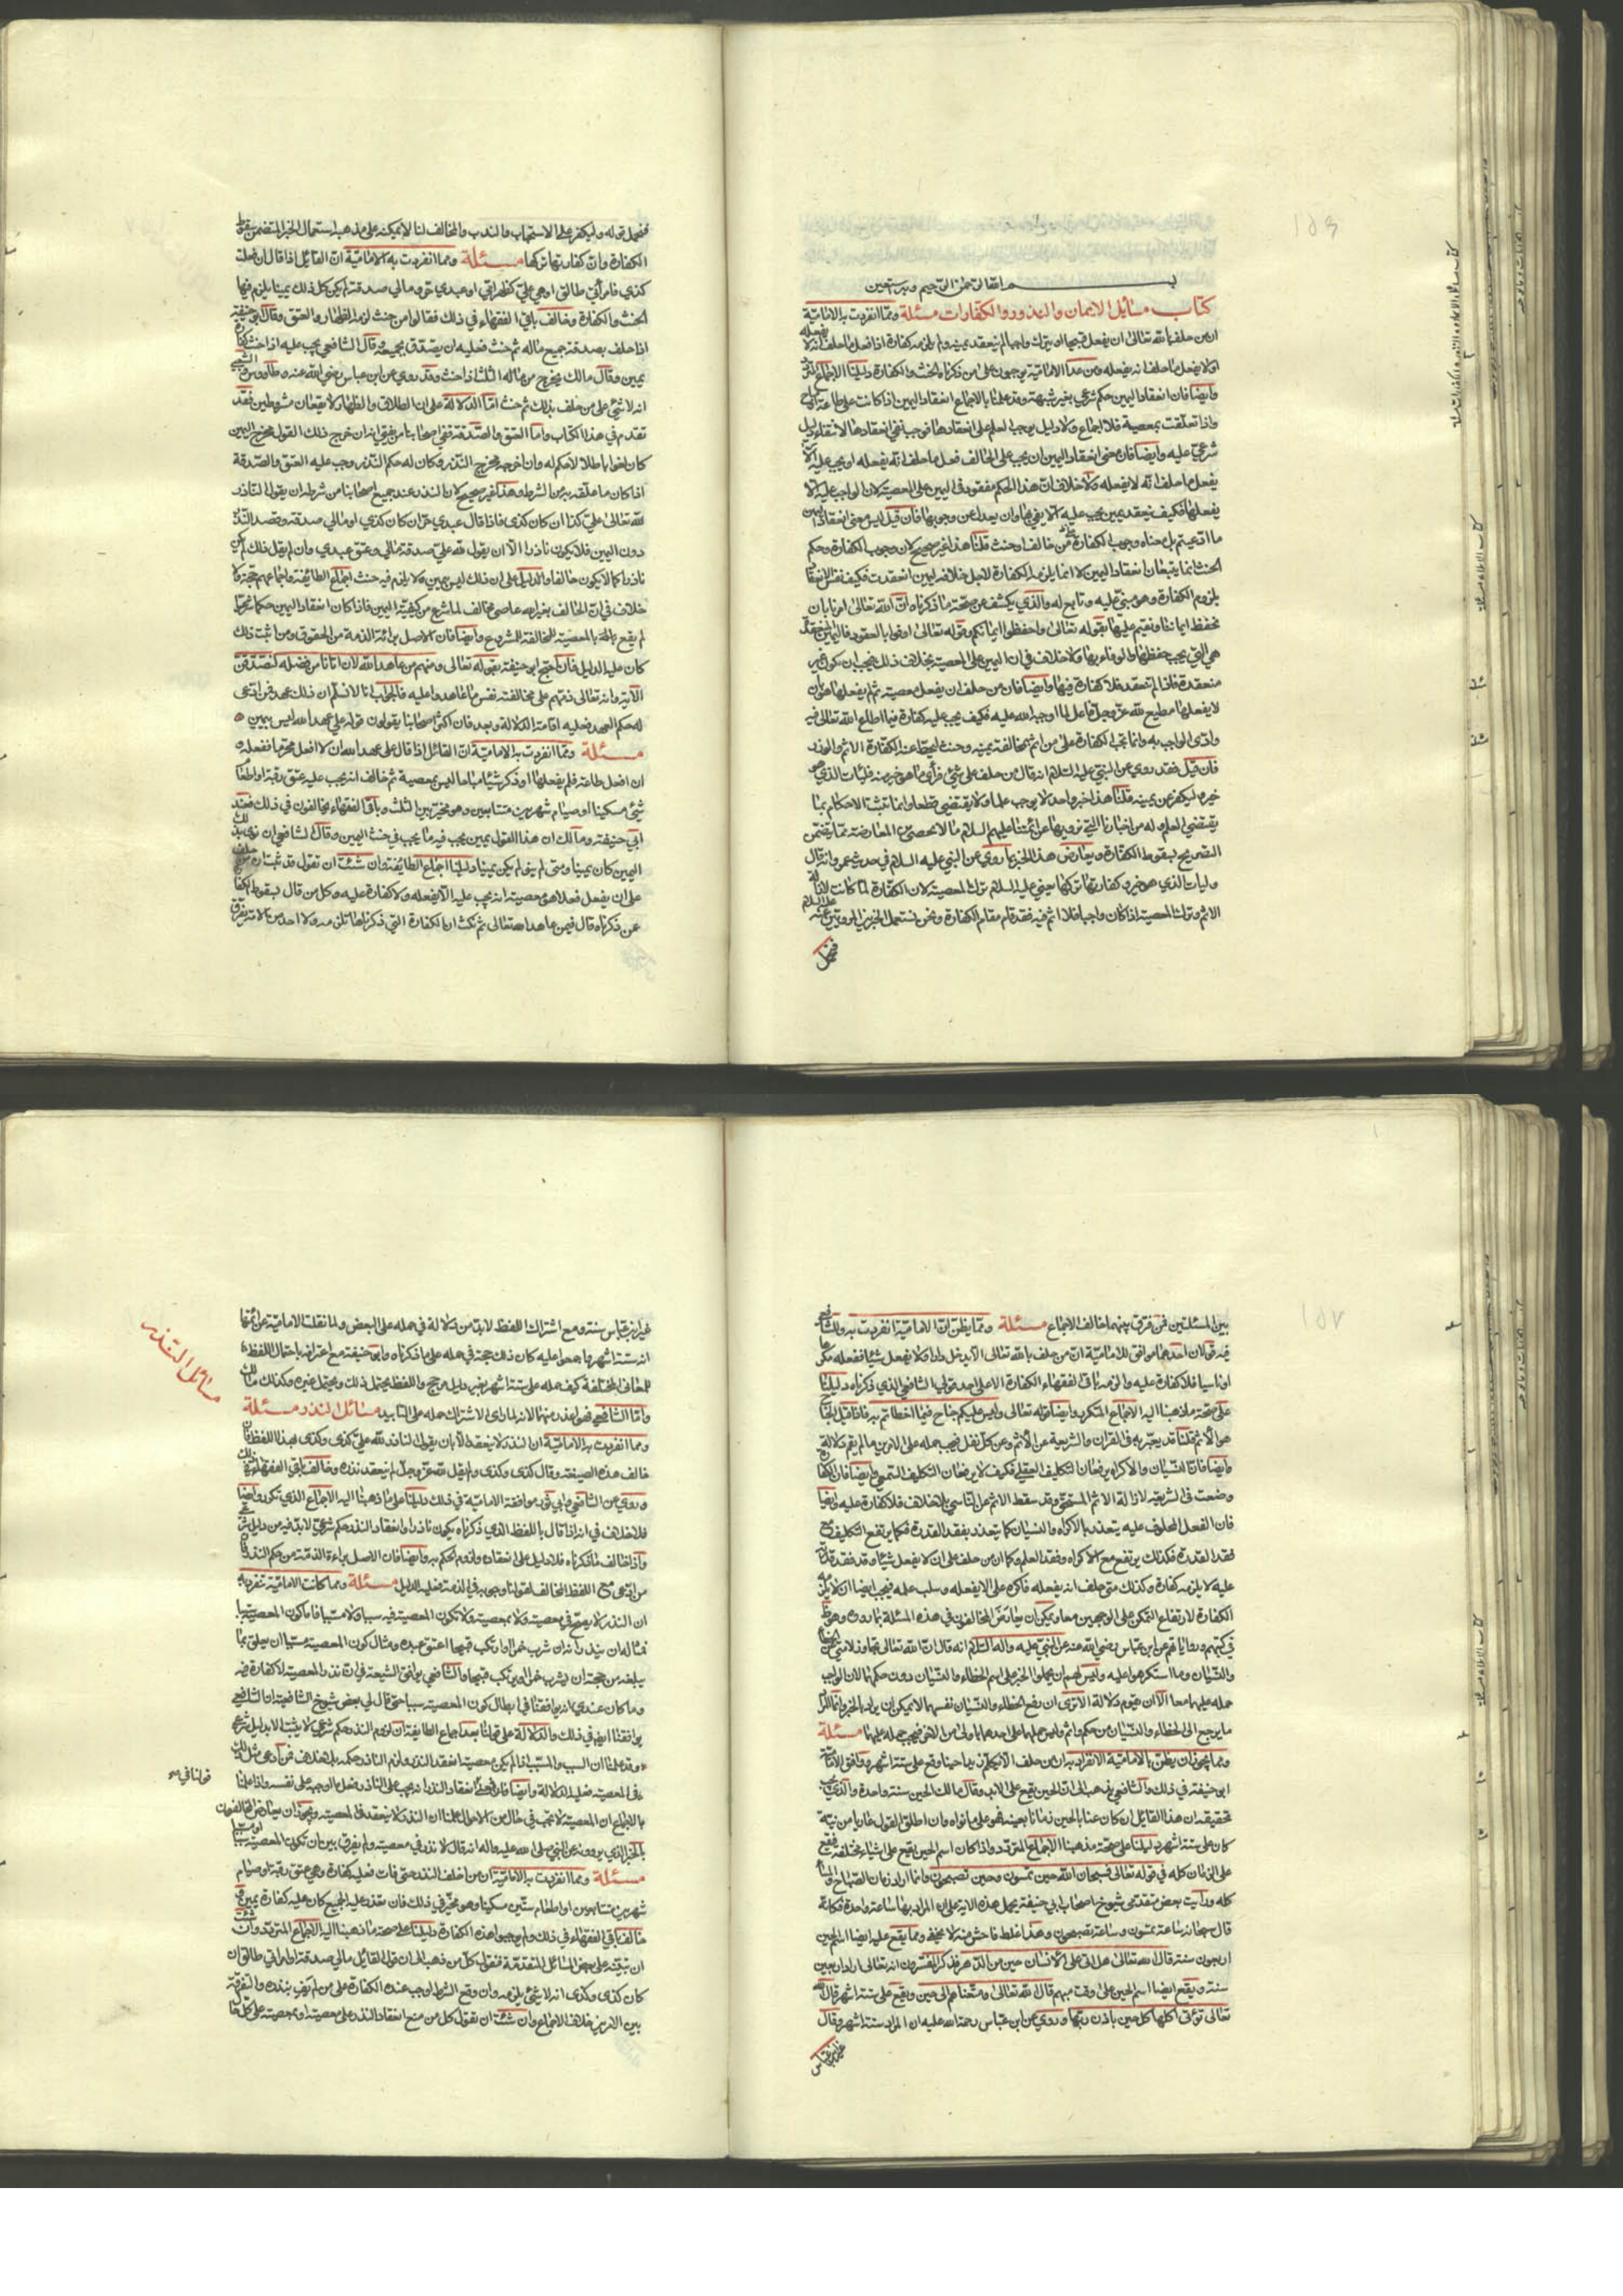 بسم الله الرحمن الرحيم وبه نستعين
كتاب مسائل الايمان والنذور والكفارات مسئلة ومما انفردت به الامامية
ان من حلف بالله تعالى ان يفعل قبيحا او يترك واجبا لم ينعقد يمينه ولم يلزمه كفارة اذا فعل ما حلف انه لا يفعله
او لا يفعل ما حلف انه يفعله ومن عدا الامامية يوجبون على من ذكرناه الحنث والكفارة دليلنا الاجماع
وايضا فان انعقاد اليمين حكم شرعي بغير شبهة وقد علمنا بالاجماع انعقاد اليمين اذا كانت على طاعة
واذا تعلقت بمعصية فلا اجماع ولا دليل يوجب العلم على انعقادها فوجب نفي انعقادها لانتفاء دليل
شرعي عليه وايضا فان معنى انعقاد اليمين ان يجب على الحالف فعل ما حلف انه يفعله او يجب عليه الا
يفعل ما حلف انه لا يفعله ولا خلاف ان هذا الحكم مفقود في اليمين على المعصية لان الواجب عليه الا
يفعلها فكيف ينعقد يمين يجب عليه الا يفي بها وان يعدل عن وجوبها فان قيل ليس معنى انعقاد اليمين
ما ادعيتم بل معناه وجوب الكفارة متى خالف او حنث قلنا هذا غير صحيح لان وجوب الكفارة وحكم
الحنث انما يتبعان انعقاد اليمين لانا انما يلزمه الكفارة لاجل خلافه ليمين انعقدت فكيف نفسر الانعقاد
بلزوم الكفارة وهو مبني عليه وتابع له والذي يكشف عن صحة ما ذكرناه ان الله تعالى امرنا بان
نحفظ ايماننا ونقيم عليها بقوله تعالى واحفظوا ايمانكم وقوله تعالى اوفوا بالعقود فاليمين المنعقدة
هي التي يجب حفظها والوفاء بها ولا خلاف في ان اليمين على المعصية بخلاف ذلك فيجب ان يكون غير
منعقدة فاذا لم تنعقد فلا كفارة فيها وايضا فان من حلف ان يفعل معصية ثم لم يفعلها هو بان
لا يفعلها مطيع لله عز وجل فاعل لما اوجبه الله عليه فكيف يجب عليه كفارة فيما اطاع الله تعالى فيه
وادى الواجب به وانما تجب الكفارة على من اثم بمخالفة يمينه وحنث ليحط عنه الكفارة الاثم والوزر
فان قيل فقد روي عن النبي عليه السلام انه قال من حلف على شيء فرأى ما هو خير منه فليأت الذي هو
خير وليكفر عن يمينه قلنا هذا خبر واحد لا يوجب علما ولا يقتضي قطعا وانما تثبت الاحكام بما
يقتضي العلم وله من اخبارنا التي نرويها عن ائمتنا عليهم السلام ما لا يحصى من المعارضة مما يتضمن
التصريح بسقوط الكفارة ويعارض هذا الخبر بما روي عن النبي عليه السلام في حديث عمر وانه قال
وليأت الذي هو خير وكفارتها تركها يعني عليه السلام ترك المعصية لان الكفارة لما كانت لازالة
الاثم وترك المعصية اذا كان واجبا فلا اثم فيه فقد قام مقام الكفارة ونحن نستعمل الخبرين المرويين عنه عليه السلام
فنحمل
فنحمل قوله وليكفر على الاستحباب والندب والمخالف لنا لا يمكنه على مذهبه استعمال الخبر المتضمن سقوط
الكفارة وان كفارتها تركها مسئلة ومما انفردت به الامامية ان القائل اذا قال ان فعلت
كذى فامرأتي طالق او هي علي كظهر امي او عبدي حر او مالي صدقة لم يكن كل ذلك يمينا يلزم فيها
الحنث والكفارة وخالف باقي الفقهاء في ذلك فقالوا من حنث لزمه الظهار والعتق وقال ابو حنيفة
اذا حلف بصدقة جميع ماله ثم حنث فعليه ان يتصدق بجميعه وقال الشافعي يجب عليه اذا حنث كفارة
يمين وقال مالك يخرج من ماله الثلث اذا حنث وقد روي عن ابن عباس رضي الله عنه وطاووس والشعبي
انه لا شيء على من حلف بذلك ثم حنث اما الدلالة على ان الطلاق والظهار لا يقعان مشروطين فقد
تقدم في هذا الكتاب واما العتق والصدقة ففي اصحابنا من فرق بين ان خرج ذلك القول مخرج اليمين
كان لغوا باطلا لا حكم له وان اخرجه مخرج النذر وكان له حكم النذر وجب عليه العتق والصدقة
اذا كان ما علقه به من الشرط وهذا غير صحيح لان النذر عند جميع اصحابنا من شرطه ان يقول الناذر
لله تعالى علي كذا ان كان كذى فاذا قال عبدي حر ان كان كذى او مالي صدقة وقصد النذر
دون اليمين فلا يكون ناذرا الا ان يقول لله علي صدقة مالي وعتق عبدي وان لم يقل ذلك لم يكن
ناذرا كما لا يكون حالفا والدليل على ان ذلك ليس بيمين ولا يلزم فيه حنث اجماع الطائفة واجماعهم حجة ولا
خلاف في ان الحالف بغير الله عاصي مخالف لما شرع من كيفية اليمين فاذا كان انعقاد اليمين حكما شرعيا
لم يقع بالمعصية المخالفة المشروع وايضا فان الاصل براءة الذمة من الحقوق ومن اثبت ذلك
كان عليه الدليل فان احتج ابو حنيفة بقوله تعالى ومنهم من عاهد الله لئن اتانا من فضله لنصدقن
الآية وانه تعالى ذمهم على مخالفته نفس ما عاهدوا عليه فالجواب انا لا نسلم ان ذلك عهد فمن ادعى
له حكم العهد فعليه اقامة الدلالة وبعد فان اكثر اصحابنا يقولون قوله علي عهد الله ليس بيمين
مسئلة ومما انفردت به الامامية ان القائل اذا قال علي عهد الله ان لا افعل محرما ففعله
ان افعل طاعة فلم يفعلها او ذكر شيئا مباحا ليس بمعصية ثم خالف انه يجب عليه عتق رقبة او اطعام
ستين مسكينا او صيام شهرين متتابعين وهو مخير بين الثلث وباقي الفقهاء يخالفون في ذلك فعند
ابي حنيفة ومالك ان هذا القول يمين يجب فيه ما يجب في حنث اليمين وقال الشافعي ان نوى بذلك
اليمين كان يمينا ومتى لم ينو لم يكن يمينا دليلنا اجماع الطائفة وان شئت ان تقول قد ثبت ان من حلف
على ان يفعل فعلا هو معصية انه يجب عليه الا يفعله ولا كفارة عليه وكل من قال بسقوط الكفارة
عن ذكرناه قال فيمن عاهد الله تعالى ثم نكث ان الكفارة التي ذكرناها تلزمه ولا احد من الامة يفرق
بين المسئلتين فمن فرق بينهما خالف الاجماع مسئلة ومما يظن ان الامامية انفردت به وللشافعي
فيه قولان احدهما موافق للامامية ان من حلف بالله تعالى الا يدخل دارا ولا يفعل شيئا ففعله مكرها
او ناسيا فلا كفارة عليه والزمه باقي الفقهاء الكفارة الا على احد قولي الشافعي الذي ذكرناه دليلنا
على صحة ما ذهبنا اليه الاجماع المتكرر وايضا قوله تعالى وليس عليكم جناح فيما اخطأتم به فاذا قيل الجناح
هو الاثم قلنا قد يعبر به في القرآن والشريعة عن الاثم وعن كل ثقل فيجب حمله على الامرين ما لم يقم دلالة
وايضا فان النسيان والاكراه يرفعان التكليف العقلي فكيف لا يرفعان التكليف السمعي وايضا فان الكفارة
وضعت في الشريعة لازالة الاثم المستحق وقد سقط الاثم عن الناسي بلا خلاف فلا كفارة عليه وايضا
فان الفعل المحلوف عليه يتعذر بالاكراه والنسيان كما يتعذر بفقد القدرة فكما يرتفع التكليف مع
فقد القدرة فكذلك يرتفع مع الاكراه وفقد العلم وكما ان من حلف على ان لا يفعل شيئا وقد فقد قدرته
عليه لا يلزمه كفارة وكذلك متى حلف انه يفعله فاكره على الا يفعله وسلب علمه فيجب ايضا ان لا يلزمه
الكفارة لارتفاع التمكن على الوجهين معا ويمكن ان يعارض المخالفون في هذه المسئلة بما روى وهو ظاهر
في كتبهم ورواياتهم عن ابن عباس رضي الله عنه عن النبي عليه وآله السلام انه قال ان الله تعالى تجاوز لامتي عن الخطأ
والنسيان وما استكرهوا عليه وليس لهم ان يحملوا الخبر على اسم الخطاء والنسيان دون حكمهما لان الواجب
حمله عليهما معا الا ان تقوم دلالة الا ترى ان رفع الخطاء والنسيان نفسهما لا يمكن ان يراد بالخبر وانما المراد
ما يرجع الى الخطاء والنسيان من حكم واثم وليس حملها على احدهما باولى من الاخر فيجب حمله عليهما مسئلة
ومما يجوز ان يظن بالامامية الانفراد به ان من حلف الا يكلم زيدا حينا وقع على ستة اشهر ووافق الامامية
ابو حنيفة في ذلك والشافعي يذهب الى ان الحين يقع على الابد وقال مالك الحين سنة واحدة والذي يجب
تحقيقه ان هذا القائل ان كان عنا بالحين زمانا بعينه فهو على ما نواه وان اطلق القول عاريا من نية
كان على ستة اشهر دليلنا على صحة مذهبنا الاجماع المتردد واذا كان اسم الحين يقع على اشياء مختلفة فيقع
على الزمان كله في قوله تعالى فسبحان الله حين تمسون وحين تصبحون وانما اراد زمان الصباح والمساء
كله ورأيت بعض متقدمي شيوخ اصحاب ابي حنيفة يحمل هذه الآية على ان المراد بها ساعة واحدة فكانه
قال سبحانه ساعة تمسون وساعة تصبحون وهذا غلط فاحش منه لا يخفى ومما يقع عليه ايضا اسم الحين
اربعون سنة قال الله تعالى هل اتى على الانسان حين من الدهر فذكر المفسرون انه تعالى اراد اربعين
سنة ويقع ايضا اسم الحين على وقت مبهم قال الله تعالى ومتعناهم الى حين ويقع على ستة اشهر قال الله
تعالى تؤتي اكلها كل حين باذن ربها وروي عن ابن عباس رحمة الله عليه ان المراد ستة اشهر وقال
غير ابن عباس
غير ابن عباس سنة ومع اشتراك اللفظ لابد من دلالة في حمله على البعض ولما نقلت الامامية عن ائمتها
انه ستة اشهر واجمعوا عليه كان ذلك حجة في حمله على ما ذكرناه وابو حنيفة مع اعترافه باحتمال اللفظ
للمعاني المختلفة كيف حمله على ستة اشهر بغير دليل مرجح واللفظ يحتمل ذلك ويحتمل غيره وكذلك مالك
واما الشافعي فهو اعذر منهما لانه لما رأى الاشتراك حمله على التأبيد مسائل النذر مسئلة
ومما انفردت به الامامية ان النذر لا ينعقد الا بان يقول الناذر لله علي كذى وكذى بهذا اللفظ فان
خالف هذه الصيغة وقال كذى وكذى ولم يقل لله عز وجل لم ينعقد نذره وخالف باقي الفقهاء في ذلك
وروي عن الشافعي وابي ثور موافقة الامامية في ذلك دليلنا على ما ذهبنا اليه الاجماع الذي تكرر وايضا
فلا خلاف في انه اذا قال باللفظ الذي ذكرناه يكون ناذرا وانعقاد النذر حكم شرعي لابد فيه من دليل شرعي
واذا خالف ما ذكرناه فلا دليل على انعقاده ولزوم الحكم به وايضا فان الاصل براءة الذمة من حكم النذر فان
من ادعى مع اللفظ المخالف لقولنا وجوبه في الذمة فعليه الدليل مسئلة ومما كانت الامامية تنفرد به
ان النذر لا يصح في معصية ولا بمعصية ولا تكون المعصية فيه سببا ولا مسببا فاما كون المعصية سببا
فمثاله ان ينذر انه ان شرب خمرا وارتكب قبيحا اعتق عبده ومثال كون المعصية مسببا ان يعلق بما
يبلغه من حجة ان يشرب خمرا او يرتكب قبيحا والشافعي يوافق الشيعة في ان نذر المعصية لا كفارة فيه
وما كان عندي انه يوافقنا في ابطال كون المعصية سببا حتى قال لي بعض شيوخ الشافعية ان الشافعي
يوافقنا ايضا في ذلك والدلالة على قولنا بعد اجماع الطائفة ان لزوم النذر حكم شرعي لا يثبت الا بدليل شرعي
وقد علمنا ان السبب والمسبب اذا لم يكن معصية انعقد النذر ولزم الناذر حكمه بلا خلاف فمن ادعى مثل ذلك
في المعصية فعليه الدلالة وايضا فان معنى انعقاد النذر انه يجب على الناذر فعل ما اوجبه على نفسه واذا علمنا
بالاجماع ان المعصية لا تجب في حال من الاحوال علمنا ان النذر لا ينعقد في المعصية ويجوز ان يعارض المخالفون
بالخبر الذي يروونه عن النبي صلى الله عليه وآله انه قال لا نذر في معصية ولم يفرق بين ان تكون المعصية سببا او مسببا
مسئلة ومما انفردت به الامامية ان من خالف النذر حتى فات فعليه كفارة وهي عتق رقبة او صيام
شهرين متتابعين او اطعام ستين مسكينا وهو مخير في ذلك فان تعذر عليه الجميع كان عليه كفارة يمين
وخالف باقي الفقهاء في ذلك ولم يوجبوا هذه الكفارة دليلنا على صحة ما ذهبنا اليه الاجماع المتردد وان شئت
ان تبنيه على بعض المسائل المتقدمة فتقول كل من ذهب الى ان قول القائل مالي صدقة او امرأتي طالق ان
كان كذى وكذى انه لا شيء يلزمه وان وقع الشرط اوجب هذه الكفارة على من لم يف بنذره والتفرقة
بين الامرين خلاف الاجماع وان شئت ان تقول كل من منع انعقاد النذر على معصية او بمعصية على كل حال
مسائل النذر